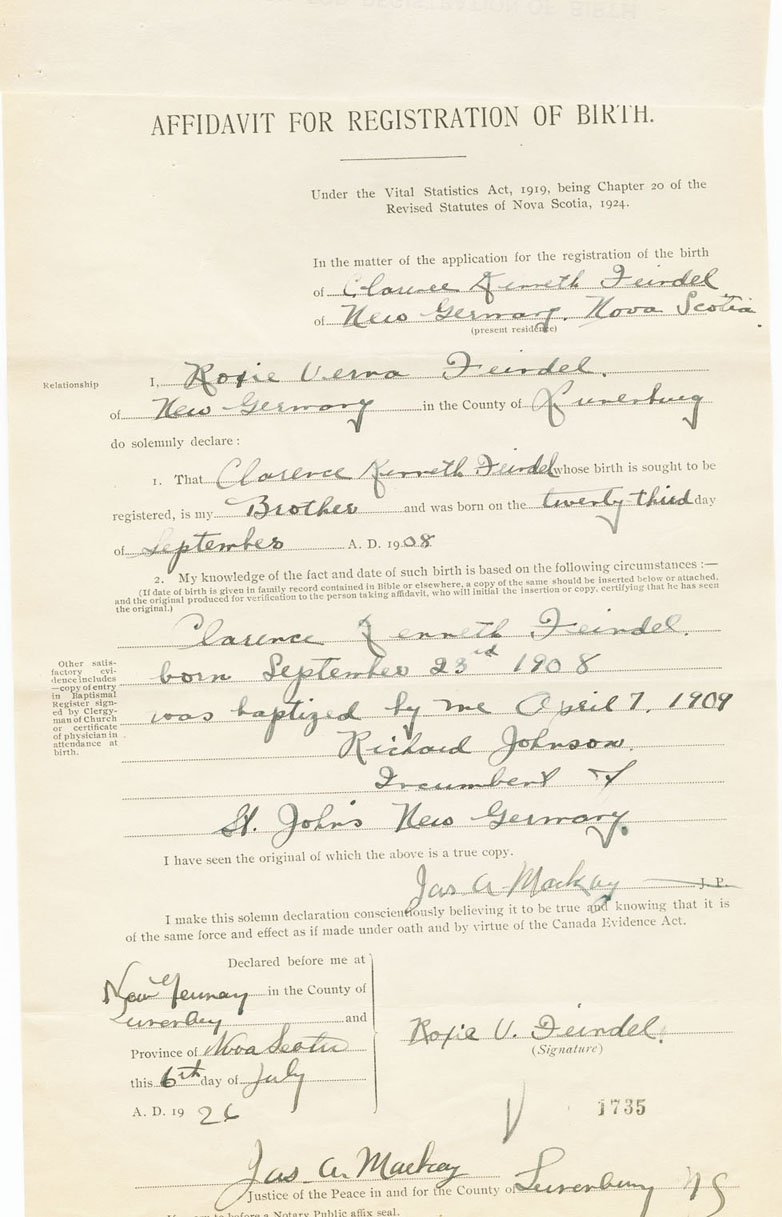 AFFIDAVIT FOR REGISTRATION OF BIRTH.
Under the Vital Statistics Act, 1919, being Chapter 20 of the
Revised Statutes of Nova Scotia, 1924.
In the matter of the application for the registration of the birth
of Clarence Kenneth Feindel
of New Germany, Nova Scotia.
(present residence)
Relationship
I, Roxie Verna Feindel.
of New Germany in the County of Lunenburg
do solemnly declare :
1. That Clarence Kenneth Feindel whose birth is sought to be
registered, is my Brother and was born on the twenty third day
of September A. D. 1908
2. My knowledge of the fact and date of such birth is based on the following circumstances :—
(If date of birth is given in family record contained in Bible or elsewhere, a copy of the same should be inserted below or attached,
and the original produced for verification to the person taking affidavit, who will initial the insertion or copy, certifying that he has seen
the original.)
Other satis-
factory evi-
dence includes
—copy of entry
in Baptismal
Register sign-
ed by Clergy-
man of Church
or certificate
of physician in
attendance at
birth.
Clarence Kenneth Feindel.
born September 23rd 1908
was baptized by me April 7, 1909
Richard Johnson.
Incumbent of
St. John's New Germany.
I have seen the original of which the above is a true copy.
Jas A Mackay J. P.
I make this solemn declaration conscientiously believing it to be true and knowing that it is
of the same force and effect as if made under oath and by virtue of the Canada Evidence Act.
Declared before me at
New Germany in the County of
Lunenburg and
Province of Nova Scotia
this 6th day of July
A. D. 1926
Roxie V. Feindel.
(Signature)
1735
Jas. A. Mackay
Justice of the Peace in and for the County of Lunenburg NS
before a Notary Public affix seal.